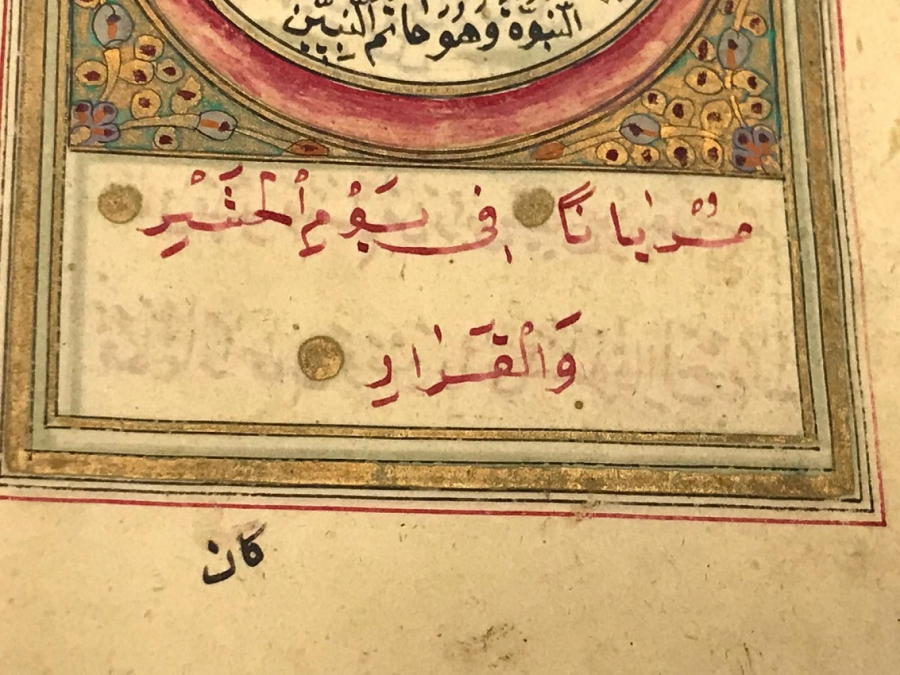 النبوة وهو خاتم النبيّن
عُرْيَانًا فِى يَوْمِ الْحَشْرِ
وَالْقَرَارِ
كان